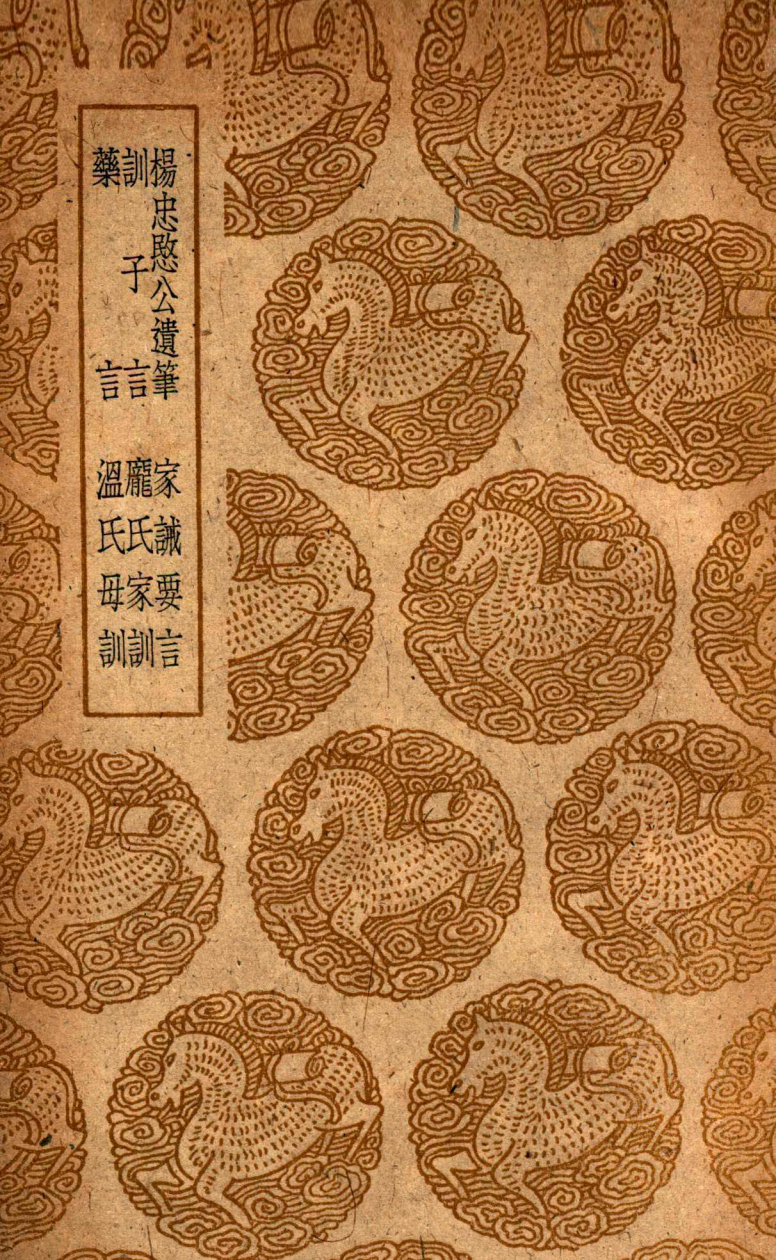 楊忠愍公遺筆 家誡要言
訓子言 龐氏家訓
藥言 溫氏母訓